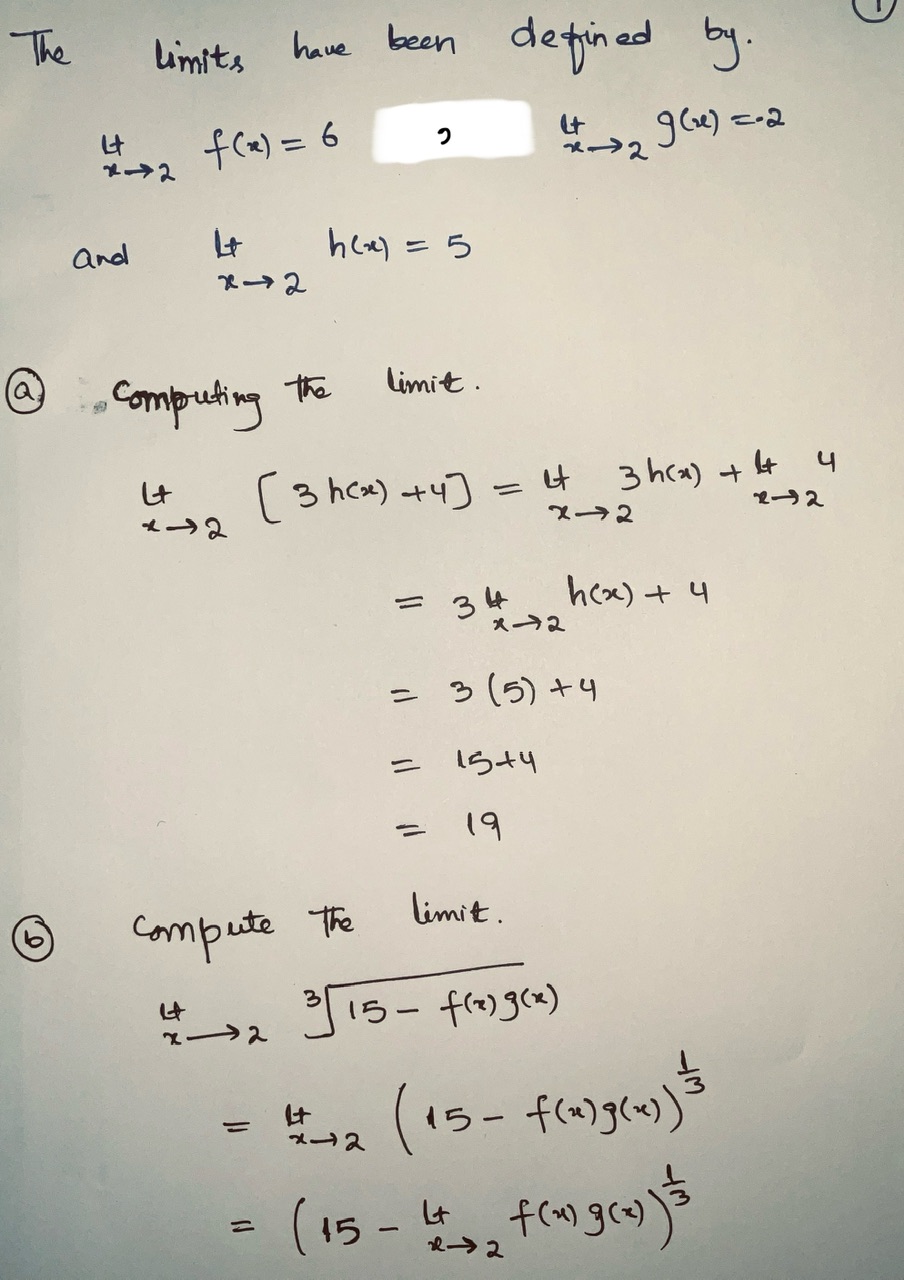 1
The limits have been defined by.
Lt x→2 f(x) = 6 , Lt x→2 g(x) = -2
and Lt x→2 h(x) = 5
(a) Computing the limit.
Lt x→2 [3h(x)+4] = Lt x→2 3h(x) + Lt x→2 4
= 3 Lt x→2 h(x) + 4
= 3(5)+4
= 15+4
= 19
(b) Compute the limit.
Lt x→2 ∛15 - f(x)g(x)
= Lt x→2 (15 - f(x)g(x))^1/3
= (15 - Lt x→2 f(x)g(x))^1/3